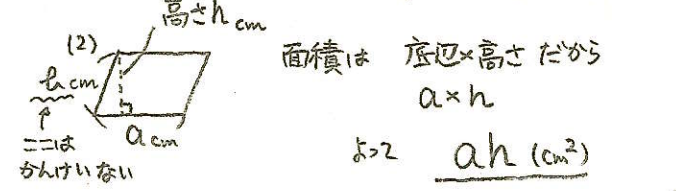 高さh cm
(2)
b cm
a cm
ここは
かんけいない
面積は 底辺×高さ だから
a×h
よって ah (cm²)